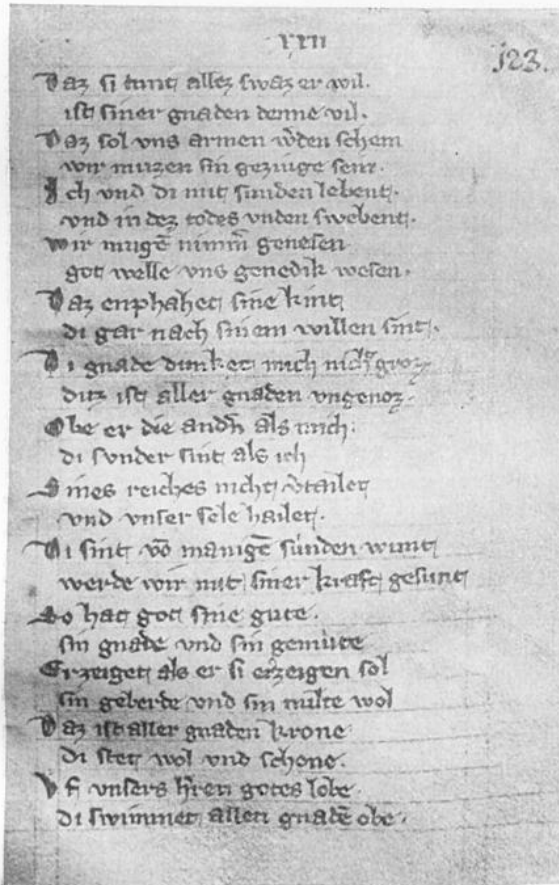 XXII
123.
Daz si tunt allez swaz er wil.
ist siner gnaden denne vil.
Daz sol vns armen w̃den schein
wir muzen sin gezuige sein.
Ich vnd di mit sunden lebent.
vnd in dez todes vnden swebent.
wir mugē nimm̃ genesen
got welle vns genedik wesen.
Daz enphahet sine kint
di gar nach sinem willen sint.
Di gnade dunket mich nicht groz
ditz ist aller gnaden vngenoz.
Obe er die andn̄ als mich.
di sunder sint als ich
Sines reiches nicht v̄tailet
vnd vnser sele hailet.
Di sint vō manigē súnden wunt
werde wir mit siner kraft gesunt
So hat got sine gute.
sin gnade vnd sin gemùte
Erzeiget als er si erzeigen sol
sin geberde vnd sin milte wol
Daz ist aller gnaden krone
di stet wol vnd schone.
Vf vnsers h̄ren gotes lobe.
di swimmet allen gnadē obe.